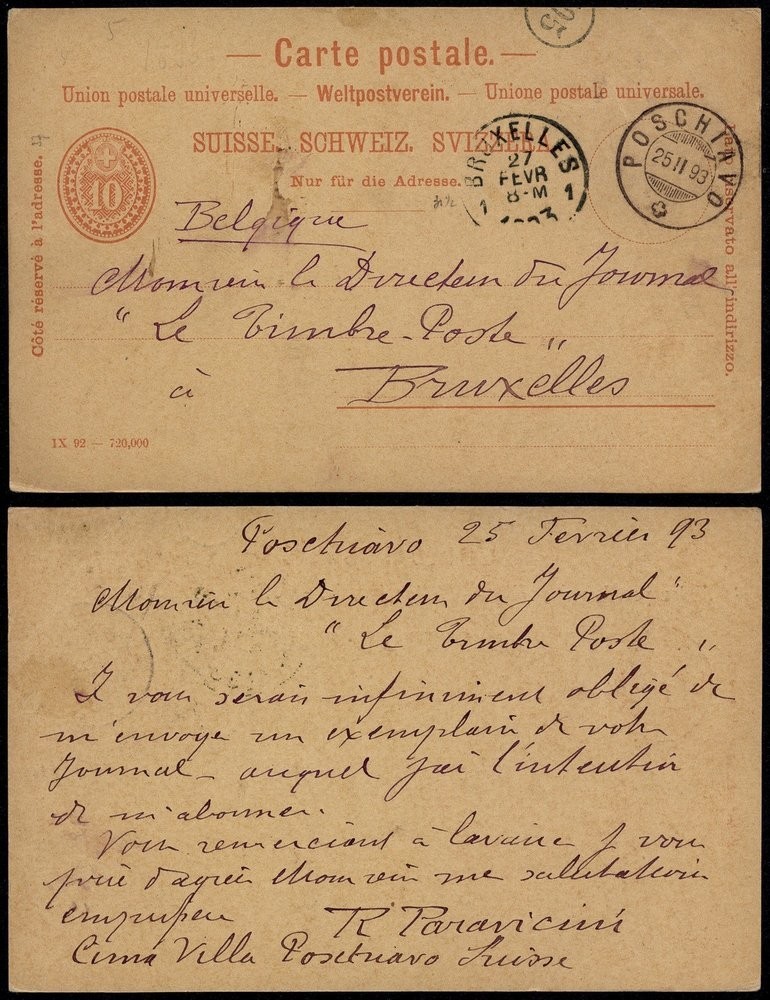 — Carte postale. —
Union postale universelle. — Weltpostverein. — Unione postale universale.
SUISSE. SCHWEIZ. SVIZZERA.
Nur für die Adresse.
Côté réservé à l'adresse.
Lato riservato all'indirizzo.
10
BRUXELLES
27
FEVR
8-M
1 1
1893
POSCHIAVO
25 II 93
Belgique
Monsieur le Directeur du Journal
"Le Timbre-Poste"
à Bruxelles
IX 92 — 720,000
Poschiavo 25 Fevrier 93
Monsieur le Directeur du Journal
"Le Timbre Poste"
Je vous serais infiniment obligé de
m'envoye un exemplaire de votre
Journal - auquel j'ai l'intention
de m'abonner.
Vous remerciant à l'avance je vous
prie d'agréer Monsieur me salutations
R Paravicini
Cima Villa Poschiavo Suisse